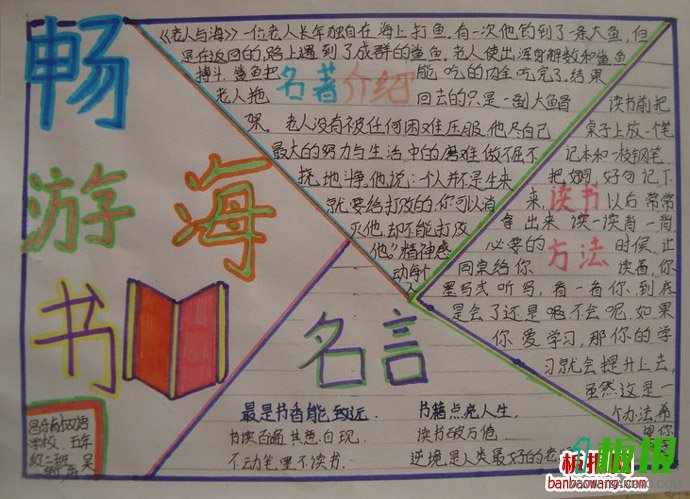 畅
游
书
海
《老人与海》一位老人长年独自在海上打鱼.有一次他钓到了一条大鱼,但
是在返回的路上遇到了成群的鲨鱼.老人使出浑身解数和鲨鱼
搏斗.鲨鱼把 能吃的肉全吃完了.结果
名著介绍
老人拖 回去的只是一副大鱼骨
架.老人没有被任何困难压服.他尽自己
最大的努力与生活中的磨难做不屈不
挠地斗争.他说:一个人并不是生来
就要给打败的.你可以消
灭他却不能打败
他."精神感
动每个
人
读书前把
桌子上放一个笔
记本和一枝钢笔
把好句记下
来 以后常常
读书
拿出来读一读背一背.
必要的 时候.让
方法
同桌给你 读着,你
墨写式听写,看一看你到底
是会了还是不会呢.如果
你爱学习,那你的学
习就会提升上去,
虽然这是一
个办法希
名言
最是书香能致远.
书读百遍其意自现.
不动笔墨不读书.
书籍点亮人生.
读书破万卷
逆境是人类最好的老师
双语
学校.五年
级二班 吴
板报
banbaowang.com